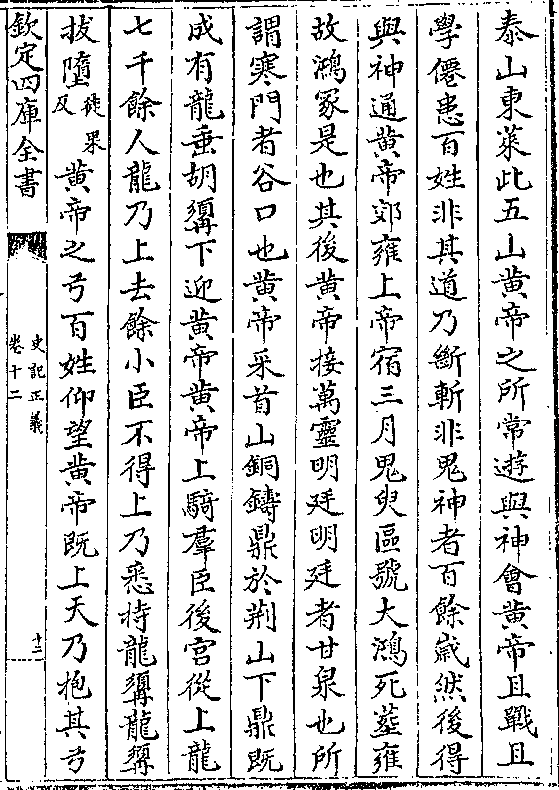 泰山東萊此五山黄帝之所常遊與神會黄帝且戰且
學僊患百姓非其道乃斷斬非鬼神者百餘嵗然後得
與神通黄帝郊雍上帝宿三月鬼臾區號大鴻死塟雍
故鴻冢是也其後黄帝接萬靈明廷明廷者甘泉也所
謂寒門者谷口也黄帝采首山銅鑄鼎於荆山下鼎既
成有龍垂胡髯下迎黄帝黄帝上騎羣臣後宮從上龍
七千餘人龍乃上去餘小臣不得上乃悉持龍髯龍髯
拔墮徒果反黄帝之弓百姓仰望黄帝既上天乃抱其弓
欽定四庫全書
史記正義
卷十二
十三